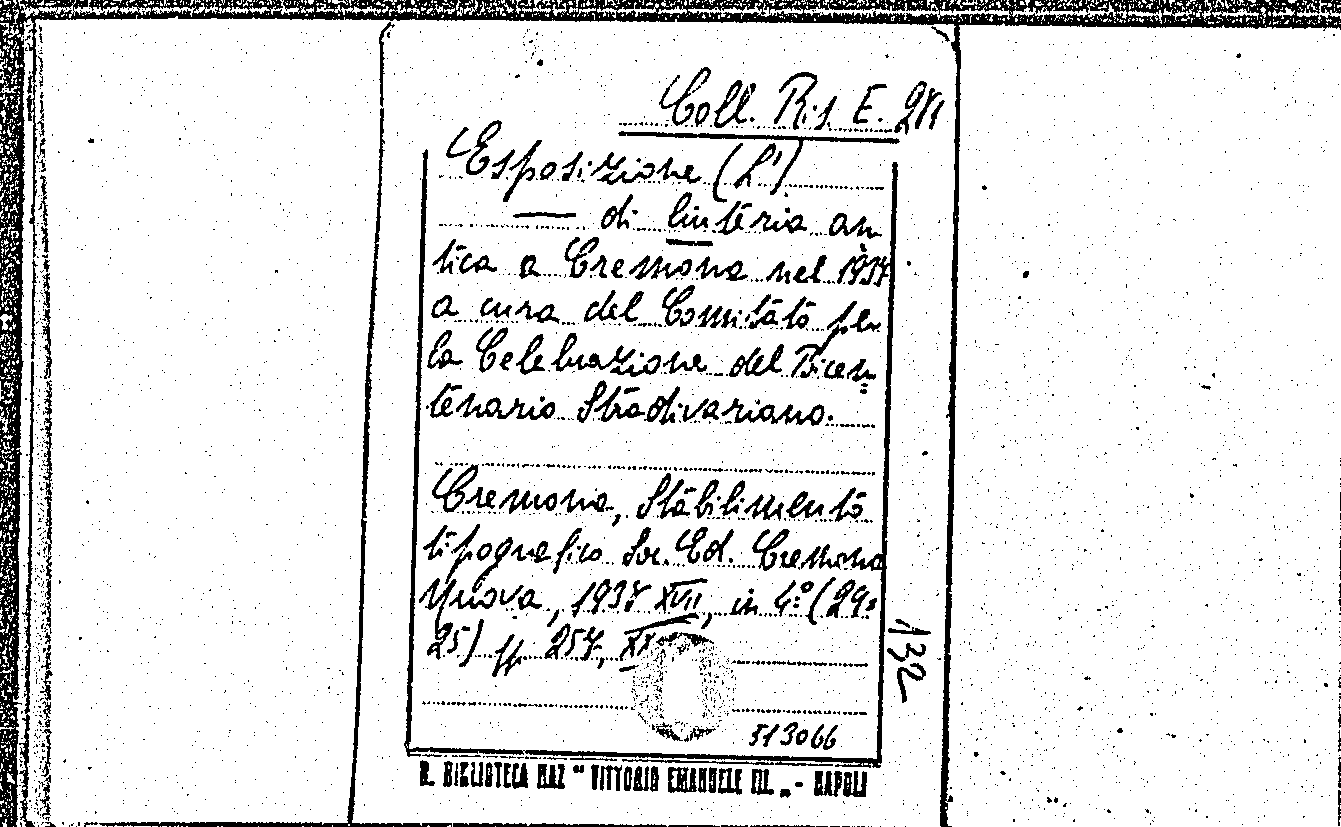 Coll. Ris. E. 281
Esposizione (L')
— di liuteria an
tica a Cremona nel 1937
a cura del Comitato per
la Celebrazione del Bicen=
tenario Stradivariano.
Cremona, Stabilimento
tipografico Soc. Ed. Cremona
Nuova, 1937 XVII, in 4.º (29×
25) pp. 257,
132
513066
R. BIBLIOTECA NAZ " VITTORIO EMANUELE III. „ - NAPOLI